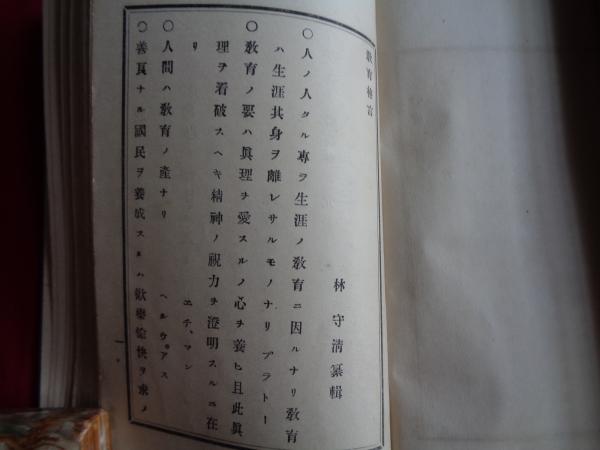 教育格言
林守清纂輯
〇人ノ人タル專ラ生涯ノ教育ニ因ルナリ教育
ハ生涯其身ヲ離レサルモノナリ プラトー
〇教育ノ要ハ眞理ヲ愛スルノ心ヲ養ヒ且此眞
理ヲ看破スヘキ精神ノ視力ヲ澄明スルニ在
リ エチ、マン
〇人間ハ教育ノ產ナリ ヘルウ゛アス
〇善良ナル國民ヲ養成スルハ歡樂愉快ヲ求ノ
一